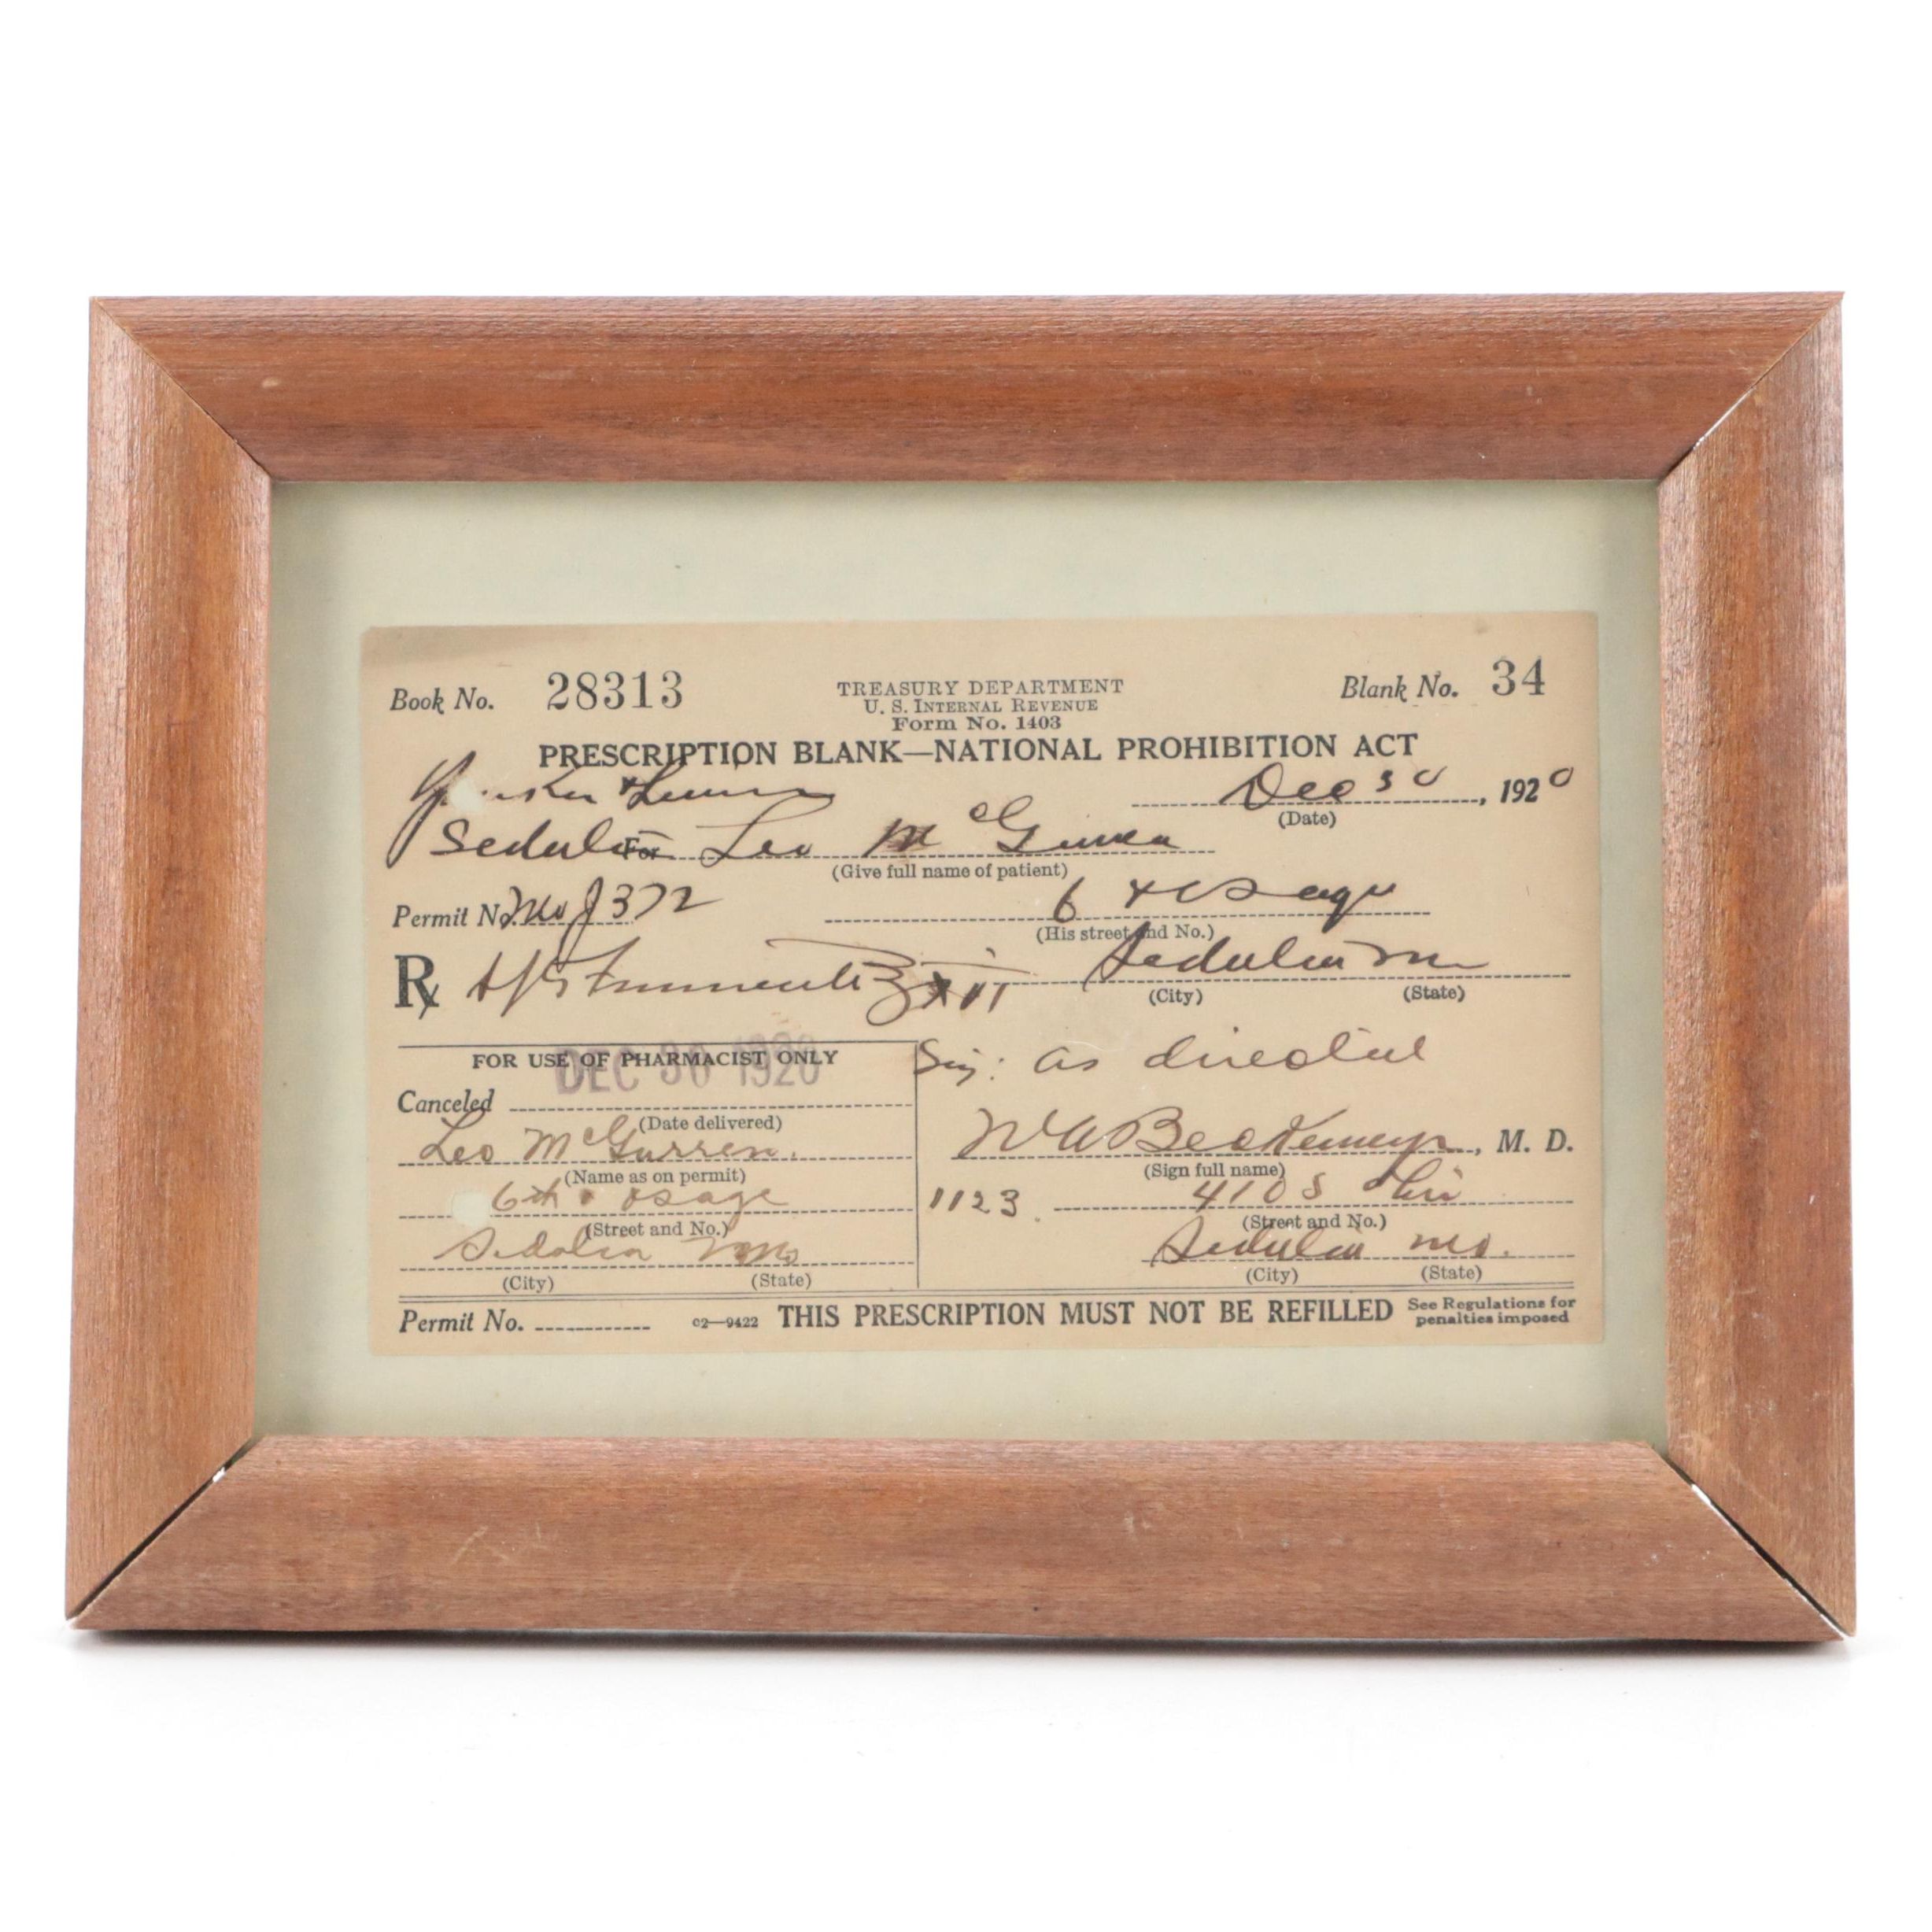 Book No. 28313
TREASURY DEPARTMENT
Blank No. 34
U. S. INTERNAL REVENUE
Form No. 1403
PRESCRIPTION BLANK—NATIONAL PROHIBITION ACT
Dec 30, 1920
(Date)
Sedalia For Leo Mc
(Give full name of patient)
Permit No. Mo J 372
6 + Osage
(His street and No.)
Rx
Sedalia Mo
(City) (State)
FOR USE OF PHARMACIST ONLY
DEC 30 1920
Sig: as directed
Canceled
(Date delivered)
Leo McGurren.
, M. D.
(Name as on permit)
(Sign full name)
6th & Osage
1123
410 S Ohio
(Street and No.)
(Street and No.)
Sedalia Mo
Sedalia Mo.
(City) (State)
(City) (State)
Permit No.
c2—9422
THIS PRESCRIPTION MUST NOT BE REFILLED
See Regulations for
penalties imposed